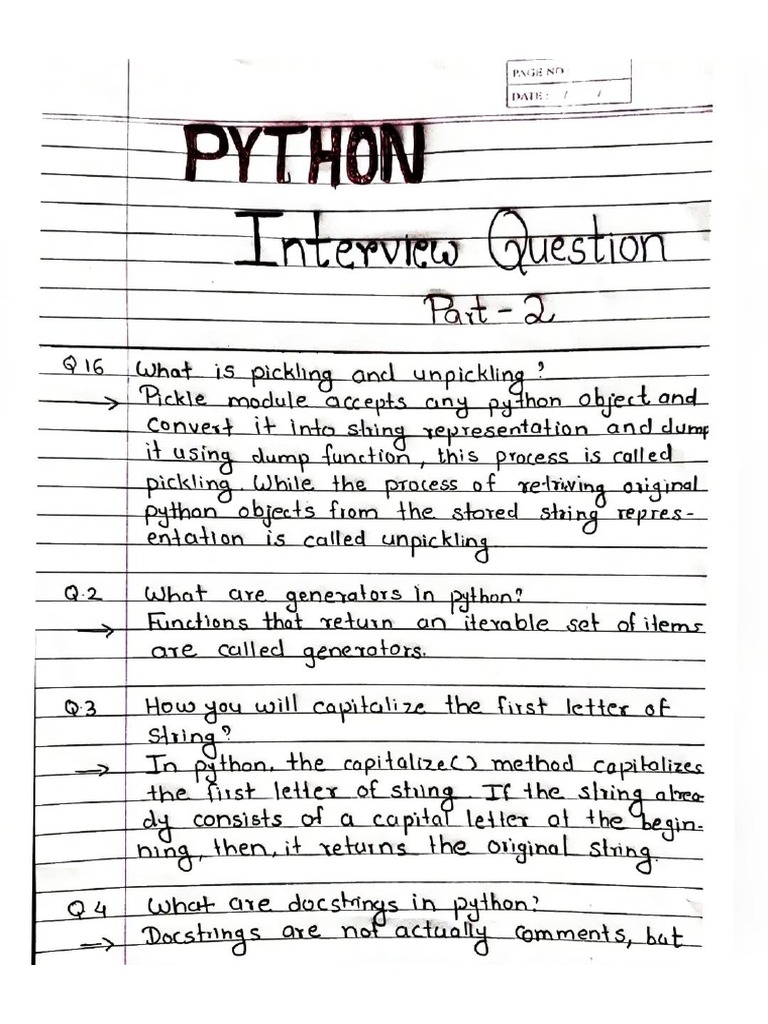 PAGE NO
DATE: / /
PYTHON
Interview Question
Part - 2
Q 16 What is pickling and unpickling?
→ Pickle module accepts any python object and
convert it into string representation and dump
it using dump function, this process is called
pickling. While the process of retriving original
python objects from the stored string repres-
entation is called unpickling
Q.2 What are generators in python?
→ Functions that return an iterable set of items
are called generators.
Q.3 How you will capitalize the first letter of
string?
→ In python, the capitalize() method capitalizes
the first letter of string. If the string alrea
dy consists of a capital letter at the begin-
ning, then, it returns the original string.
Q 4 What are docstrings in python?
→ Docstrings are not actually comments, but